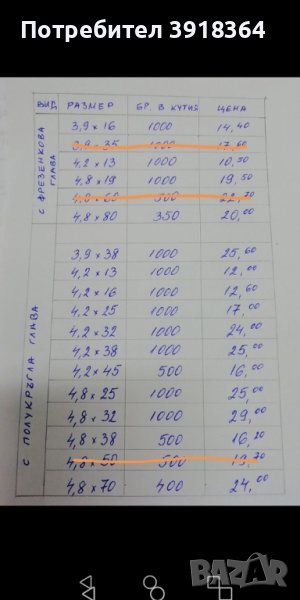 Потребител 3918364
ВИД РАЗМЕР БР. В КУТИЯ ЦЕНА
С ФРЕЗЕНКОВА ГЛАВА
3,9 x 16 1000 14,40
3,9 x 35 1000 17,60
4,2 x 13 1000 10,50
4,8 x 19 1000 19,50
4,8 x 60 500 22,70
4,8 x 80 350 20,00
С ПОЛУКРЪГЛА ГЛАВА
3,9 x 38 1000 25,60
4,2 x 13 1000 12,00
4,2 x 16 1000 12,60
4,2 x 25 1000 17,00
4,2 x 32 1000 24,00
4,2 x 38 1000 25,00
4,2 x 45 500 16,00
4,8 x 25 1000 25,00
4,8 x 32 1000 29,00
4,8 x 38 500 16,20
4,8 x 50 500 19,70
4,8 x 70 400 24,00
БАЗАР